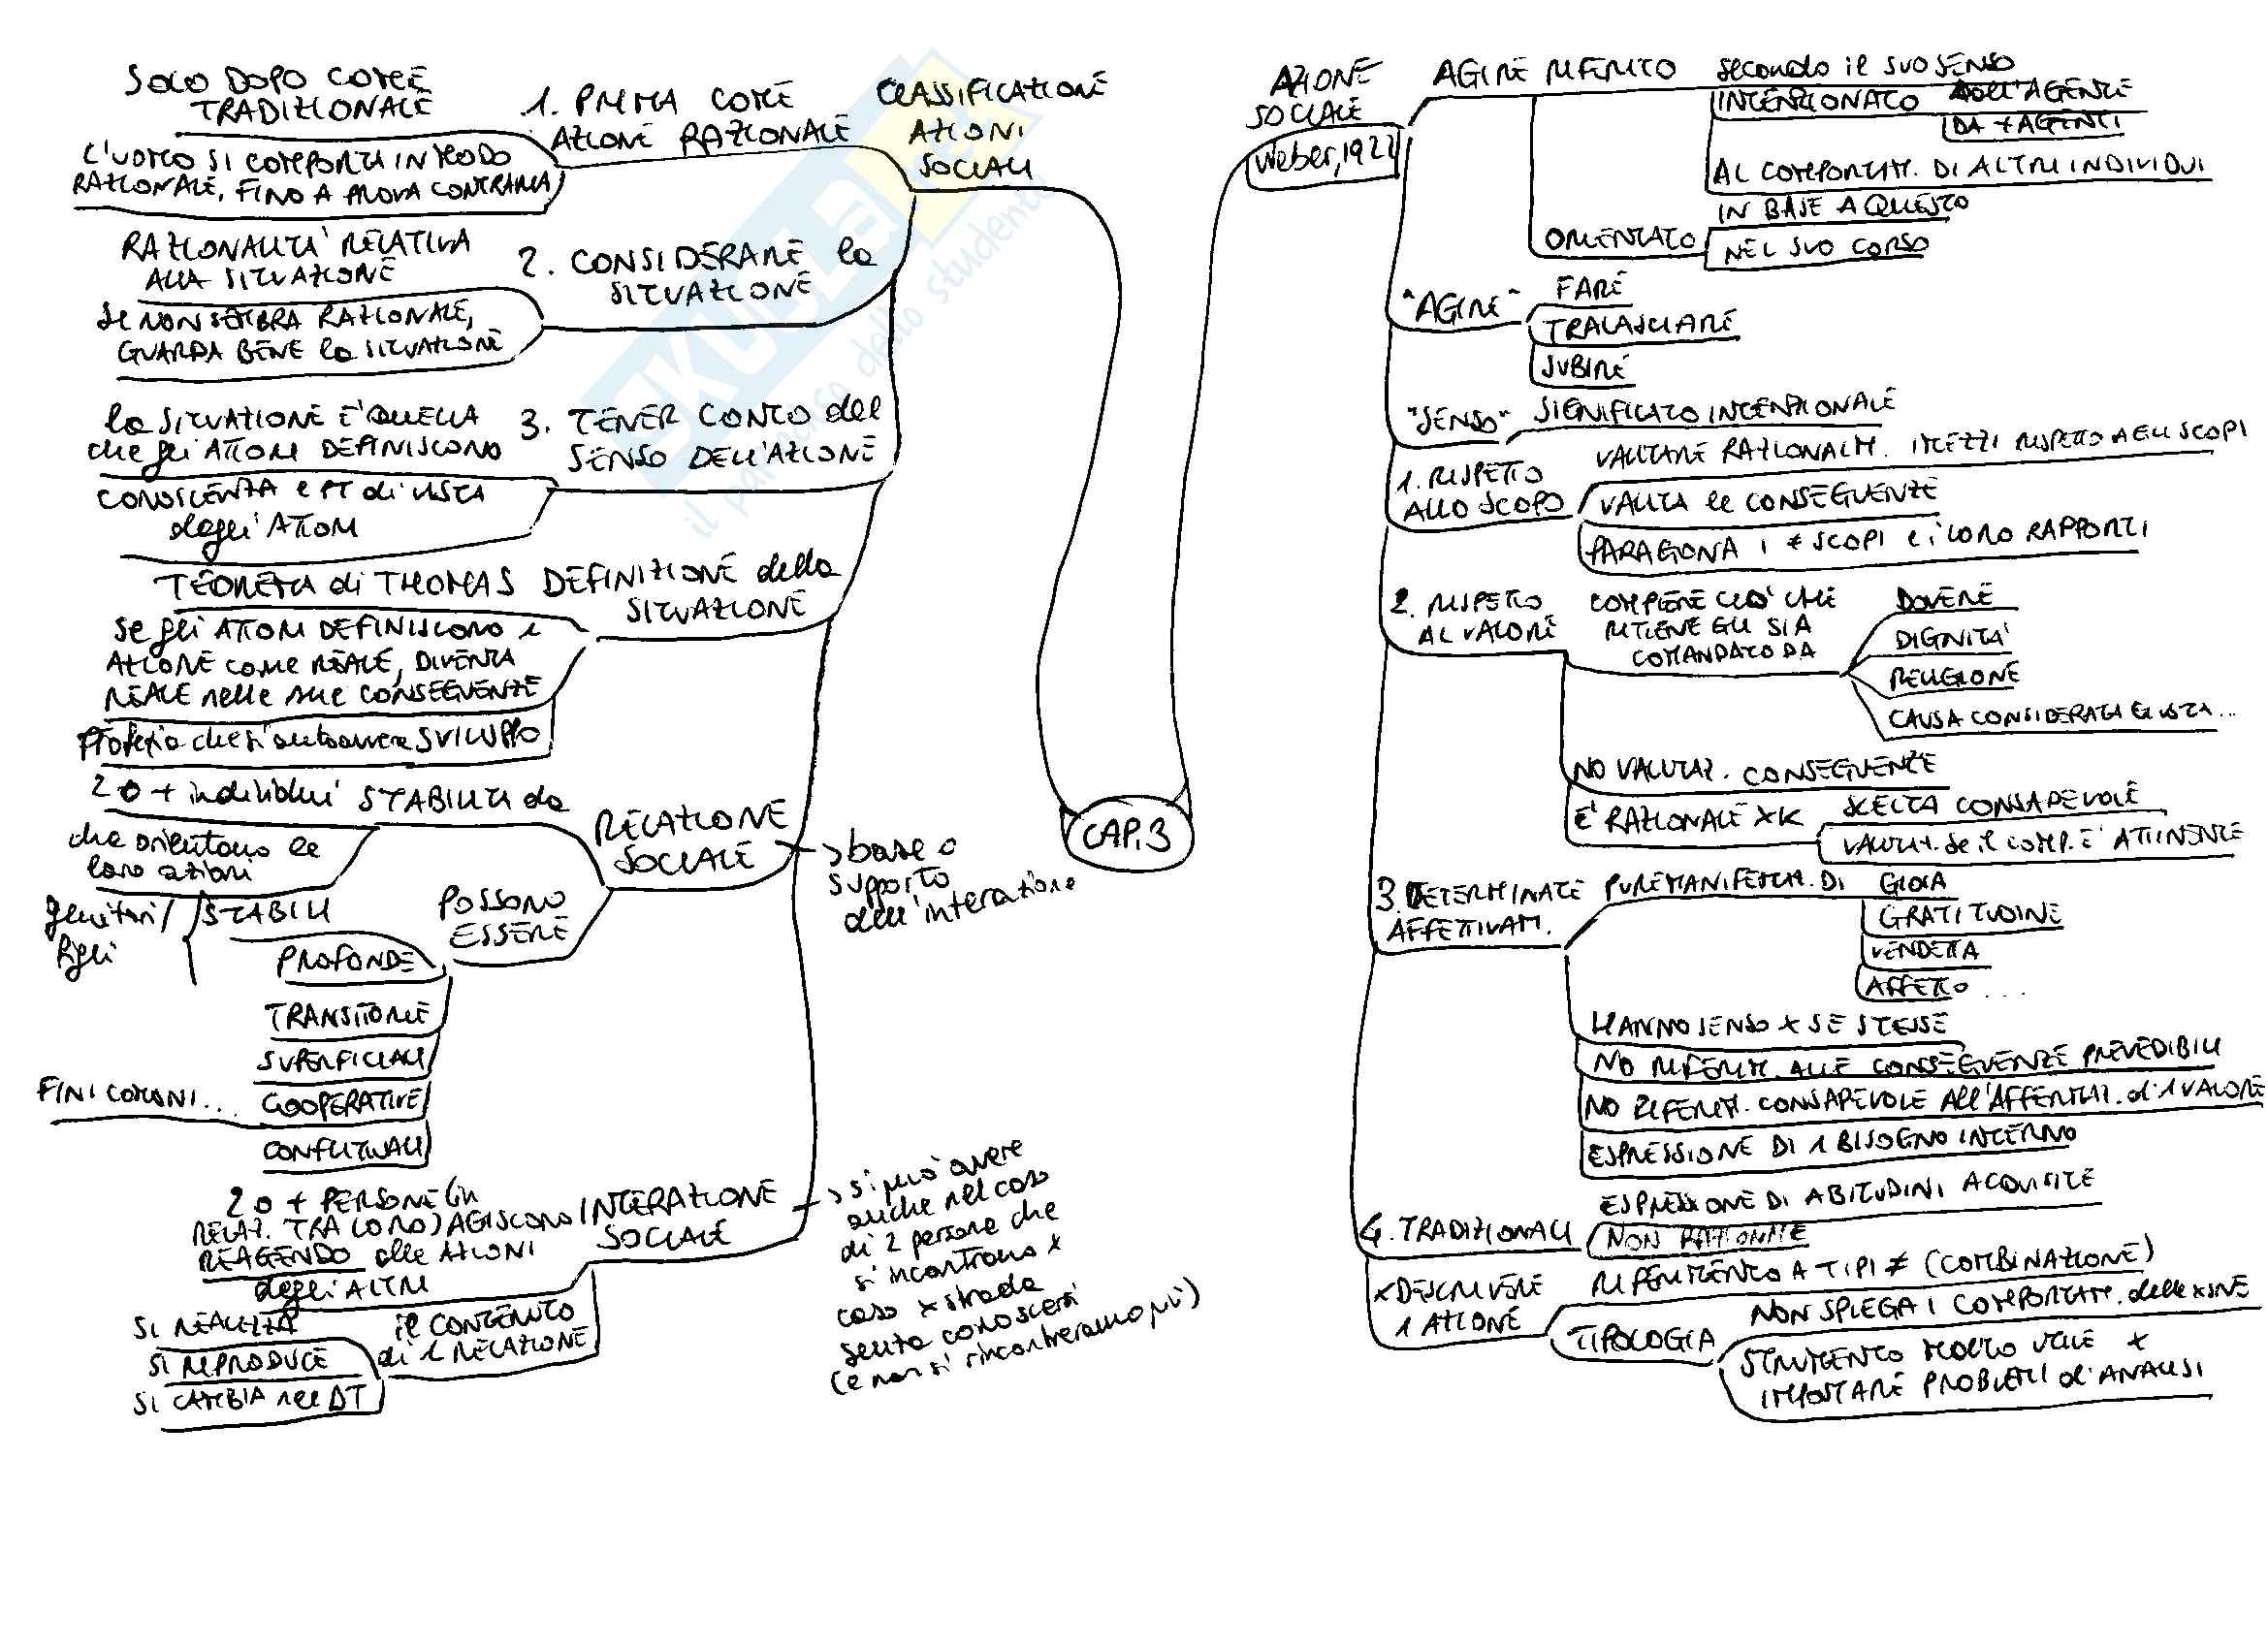 SOLO DOPO COME
TRADIZIONALE
1. PRIMA COME
AZIONE RAZIONALE
CLASSIFICAZIONE
AZIONI
SOCIALI
L'UOMO SI COMPORTA IN MODO
RAZIONALE, FINO A PROVA CONTRARIA
RAZIONALITA' RELATIVA
ALLA SITUAZIONE
2. CONSIDERARE la
SITUAZIONE
SE NON SEMBRA RAZIONALE,
GUARDA BENE la SITUAZIONE
la SITUAZIONE E' QUELLA
che gli ATTORI DEFINISCONO
3. TENER CONTO del
SENSO DELL'AZIONE
CONOSCENZA e PT di VISTA
degli ATTORI
TEOREMA di THOMAS
DEFINIZIONE della
SITUAZIONE
se gli ATTORI DEFINISCONO 1
AZIONE come REALE, DIVENTA
REALE nelle sue CONSEGUENZE
Profezia che si autoavvera SVILUPPO
2 o + individui STABILITI da
che orientano le
loro azioni
RELAZIONE
SOCIALE
→ base o
supporto
dell'interazione
POSSONO
ESSERE
genitori/
figli
STABILI
PROFONDE
TRANSITORIE
SUPERFICIALI
FINI COMUNI...
COOPERATIVE
CONFLITTUALI
2 o + PERSONE (in
RELAZ. TRA LORO) AGISCONO
REAGENDO alle AZIONI
degli ALTRI
INTERAZIONE
SOCIALE
→ si può avere
anche nel caso
di 2 persone che
si incontrano x
caso x strada
senza conoscersi
(e non si rincontreranno più)
il CONTENUTO
di 1 RELAZIONE
SI REALIZZA
SI RIPRODUCE
SI CAMBIA nel ΔT
CAP. 3
AZIONE
SOCIALE
Weber, 1922
AGIRE RIFERITO
secondo il SUO SENSO
INTENZIONATO
DALL'AGENTE
DA + AGENTI
AL COMPORTAM. DI ALTRI INDIVIDUI
ORIENTATO
IN BASE A QUESTO
NEL SUO CORSO
"AGIRE"
FARE
TRALASCIARE
SUBIRE
"SENSO"
SIGNIFICATO INTENZIONALE
1. RISPETTO
ALLO SCOPO
VALUTARE RAZIONALM. I MEZZI RISPETTO AGLI SCOPI
VALUTA le CONSEGUENZE
PARAGONA I ≠ SCOPI e i LORO RAPPORTI
2. RISPETTO
AL VALORE
COMPIERE CIO' CHE
RITIENE GLI SIA
COMANDATO DA
DOVERE
DIGNITA'
RELIGIONE
CAUSA CONSIDERATA GIUSTA...
NO VALUTAZ. CONSEGUENZE
E' RAZIONALE XK
SCELTA CONSAPEVOLE
VALUTAZ. se il COMP. E' ATTINENTE
3. DETERMINATE
AFFETTIVAM.
PURE MANIFESTAZ. DI
GIOIA
GRATITUDINE
VENDETTA
AFFETTO ...
HANNO SENSO X SE STESSE
NO RIFERIM. ALLE CONSEGUENZE PREVEDIBILI
NO RIFERIM. CONSAPEVOLE All'AFFERMAZ. di 1 VALORE
ESPRESSIONE DI 1 BISOGNO INTERNO
4. TRADIZIONALI
ESPRESSIONE DI ABITUDINI ACQUISITE
NON RAZIONALE
X DESCRIVERE
1 AZIONE
RIFERIMENTO A TIPI ≠ (COMBINAZIONE)
TIPOLOGIA
NON SPIEGA I COMPORTAM. delle XSONE
STRUMENTO MOLTO UTILE X
IMPOSTARE PROBLEMI d'ANALISI
SKUOLA.net
il paradiso dello studente